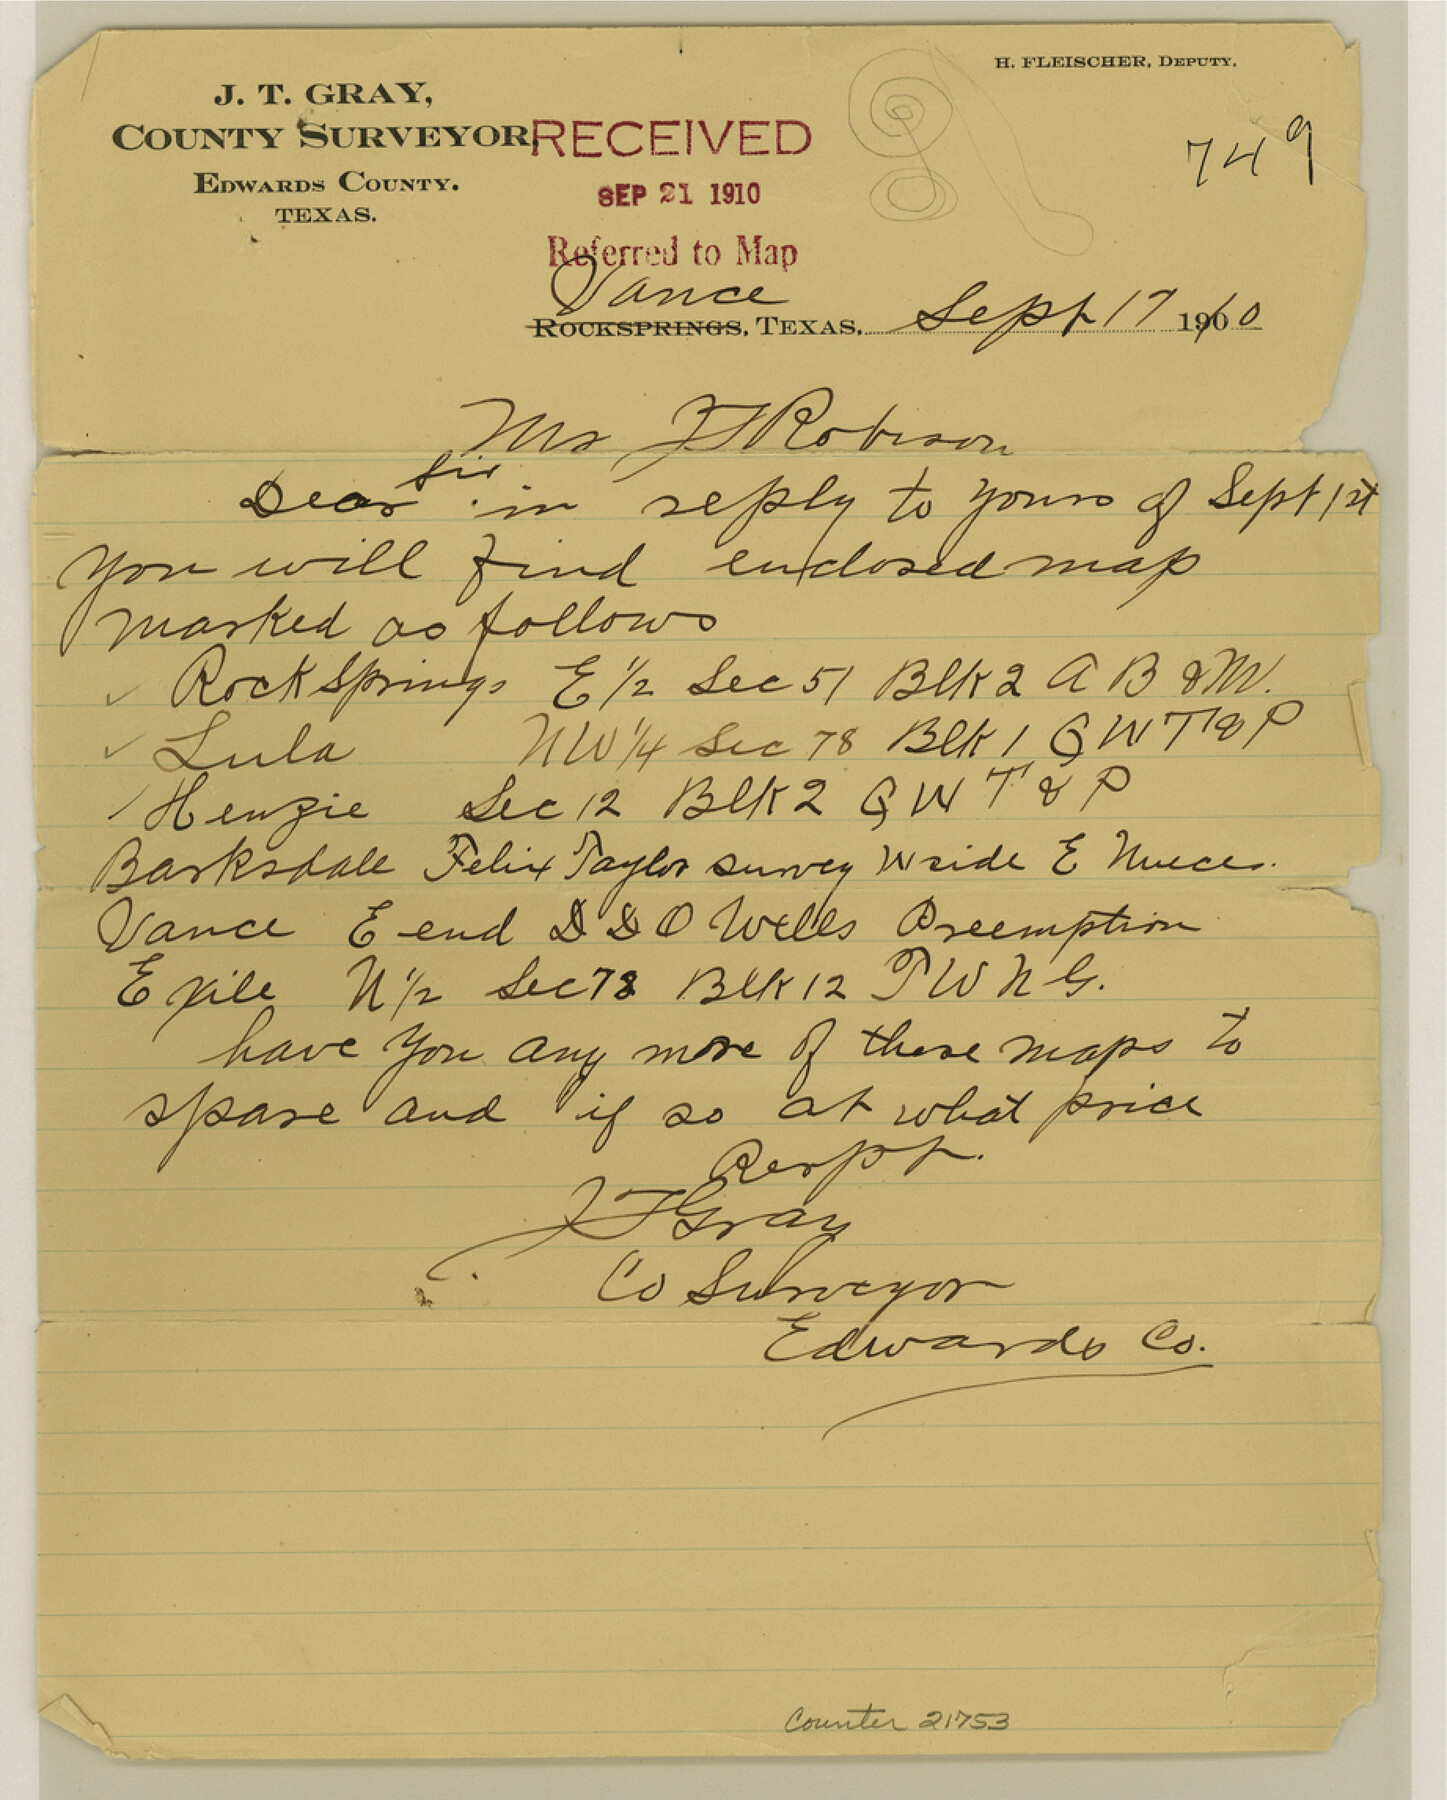 H. FLEISCHER, DEPUTY.
J. T. GRAY,
COUNTY SURVEYOR,
EDWARDS COUNTY.
TEXAS.
RECEIVED
SEP 21 1910
Referred to Map
749
Vance
ROCKSPRINGS, TEXAS. Sept 17 1910
Mr J T Robison
Dear Sir in reply to yours of Sept 1st
you will find enclosed map
marked as follows
Rock Springs E 1/2 Sec 51 Blk 2 A B & M.
Lula NW 1/4 Sec 78 Blk 1 G W T & P
Henzie Sec 12 Blk 2 G W T & P
Barksdale Felix Taylor survey W side E Nueces.
Vance E end D D O Wells Preemption
Exile N 1/2 Sec 78 Blk 12 T W N G.
have you any more of these maps to
spare and if so at what price
Respt.
J T Gray
Co Surveyor
Edwards Co.
Counter 21753